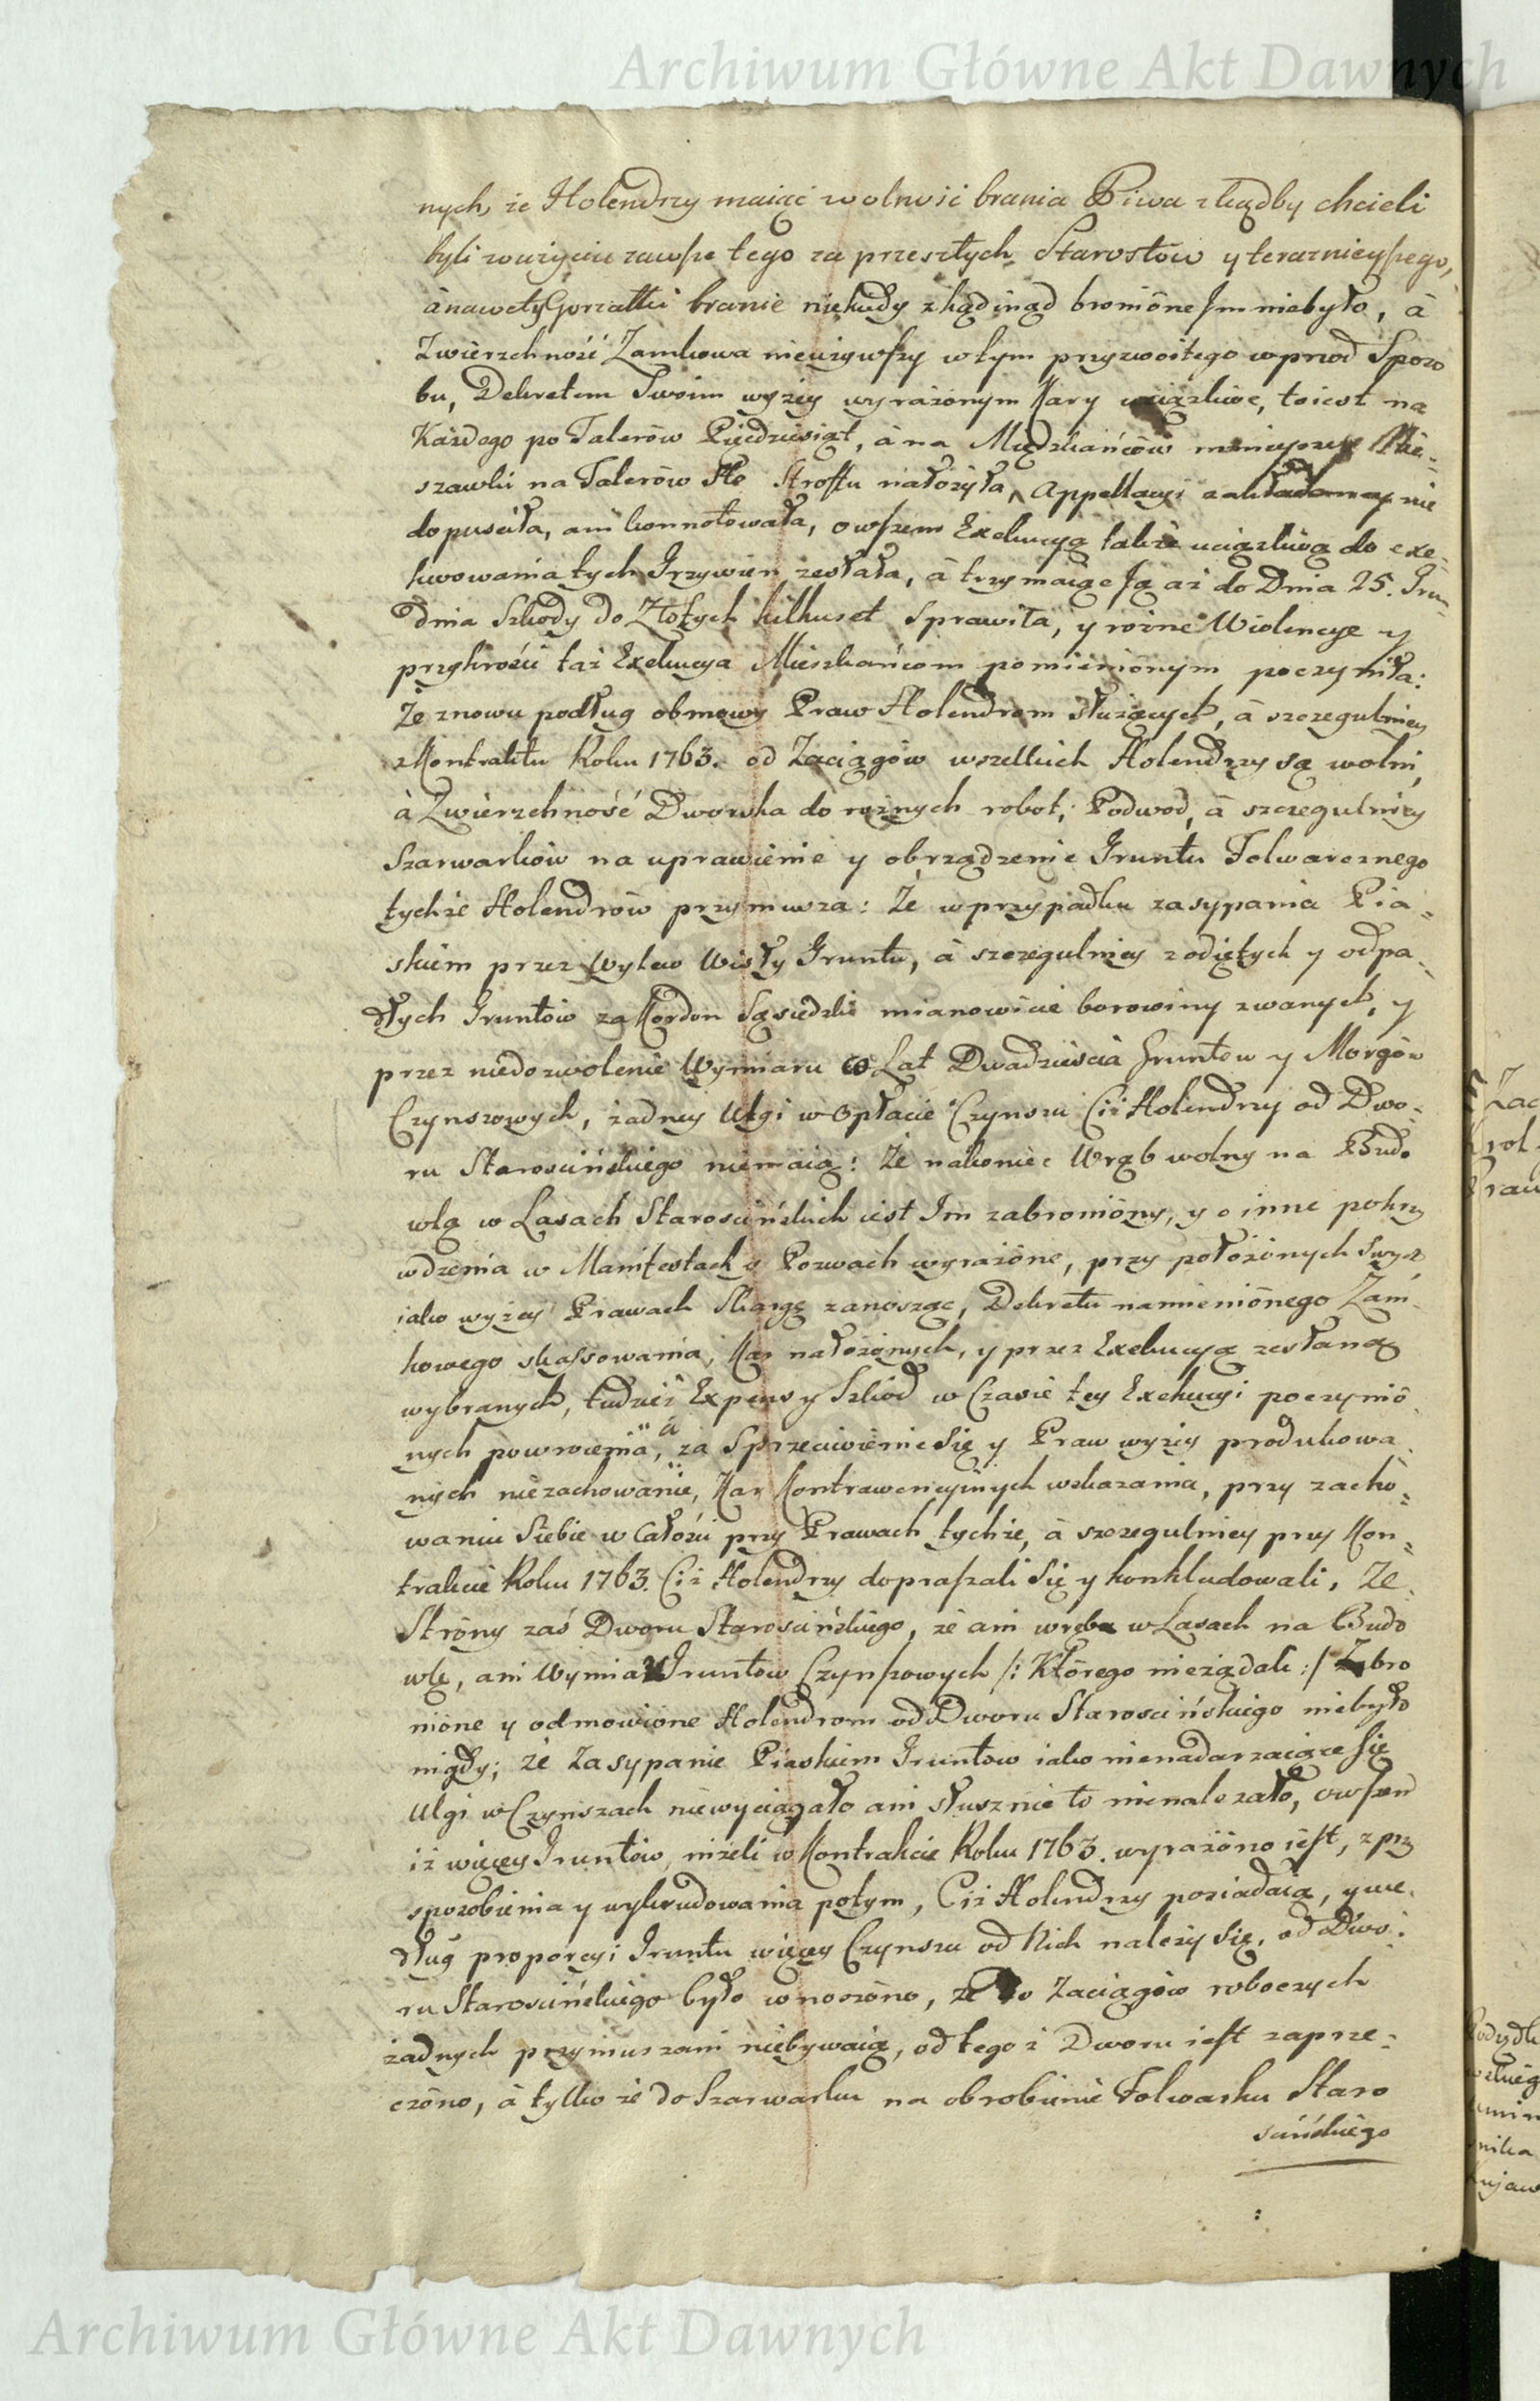 Archiwum Główne Akt Dawnych
nych, że Holendrzy maiąc wolność brania Piwa zkądby chcieli
byli w użyciu zawsze tego za przeszłych Starostów y teraznieyszego,
à nawet y Gorzałki branie niekiedy zkądinąd bronióne Im niebyło, à
Zwierzchność Zamkowa nieużywszy w tym przyzwoitego wprzod Sposo
bu, Dekretem Swoim wyżey wyrażonym Kary uciążliwe, toiest na
Każdego po Talerów Pięćdziesiąt, à na Mieszkańców Nie-
szawki na Talerów Sto Stroffu nałożyła, Appellacyi zakładaney nie
dopuściła, ani konnotowała, owszem Exekucyą także uciążliwą do exe-
kwowania tych Grzywien zesłała, à trzymaiąc Ją aż do Dnia 25. Gru-
dnia Szkody do Złotych kilkuset Sprawiła, y rożne Wiolencye y
przykrości taż Exekucya Mieszkańcom pomienionym poczyniła:
Że znowu podług obmowy Praw Holendrom służących, à szczegulniey
z Kontraktu Roku 1763. od Zaciągów wszelkich Holendrzy są wolni,
à Zwierzchność Dworska do rożnych robot, Podwod, à szczegulniey
Szarwarków na uprawienie y obrządzenie Gruntu Folwarcznego
tychże Holendrów przymusza: Że w przypadku zasypania Pia-
skiem przez Wylew Wisły Gruntu, à szczegulniey z odiętych y odpa-
dłych Gruntów za Kordon Sąsiedzki mianowicie borowiny zwanych, y
przez niedozwolenie Wymiaru co Lat Dwadzieścia Gruntów y Morgów
Czynszowych, żadney Ulgi w opłacie Czynszu Ciż Holendrzy od Dwo-
ru Starościńskiego niemaią: Że nakoniec Wrąb wolny na Budo
wlą w Lasach Starościńskich iest Im zabroniony, y o inne pokrzy
wdzenia w Manifestach y Pozwach wyrażóne, przy położónych swych
iako wyżey Prawach Skargę zanosząc, Dekretu namienionego Zam-
kowego skassowania, Kar nałożonych, y przez Exekucyą zesłaną
wybranych, tudzież Expens y Szkód w Czasie tey Exekucyi poczynió
nych powrocenia, à za Sprzeciwienie Się y Praw wyżey produkowa
nych niezachowanie, Kar Kontrawencyinych wskazania, przy zacho-
waniu Siebie w Całości przy Prawach tychże, à szczegulniey przy Kon-
trakcie Roku 1763. Ciż Holendrzy dopraszali Się y konkludowali, Ze
Stróny zaś Dworu Starościńskiego, że ani wręba w Lasach na Budo
wlę, ani Wymiar Gruntów Czynszowych /: Którego nieżądali :/ Zabro
nióne y odmowióne Holendrom od Dworu Starościńskiego niebyło
nigdy; że Zasypanie Piaskiem Gruntow iako nienadarzaiące Się
Ulgi w Czynszach niewyciągało ani słusznie to nienależało, owszem
iż więcey Gruntów, niżeli w Kontrakcie Roku 1763. wyrażóno iest, z przy
sposobienia y wykrudowania potym, Ciż Holendrzy posiadaią, y we-
dług proporcyi Gruntu więcey Czynszu od Nich należy Się, od Dwo-
ru Starościńskiego było wnoszóno, że do Zaciągów roboczych
żadnych przymuszani niebywaią, od tegoż Dworu iest zaprze-
czóno, à tylko że do Szarwarku na obrobienie Folwarku Staro
ścińskiego
Archiwum Główne Akt Dawnych